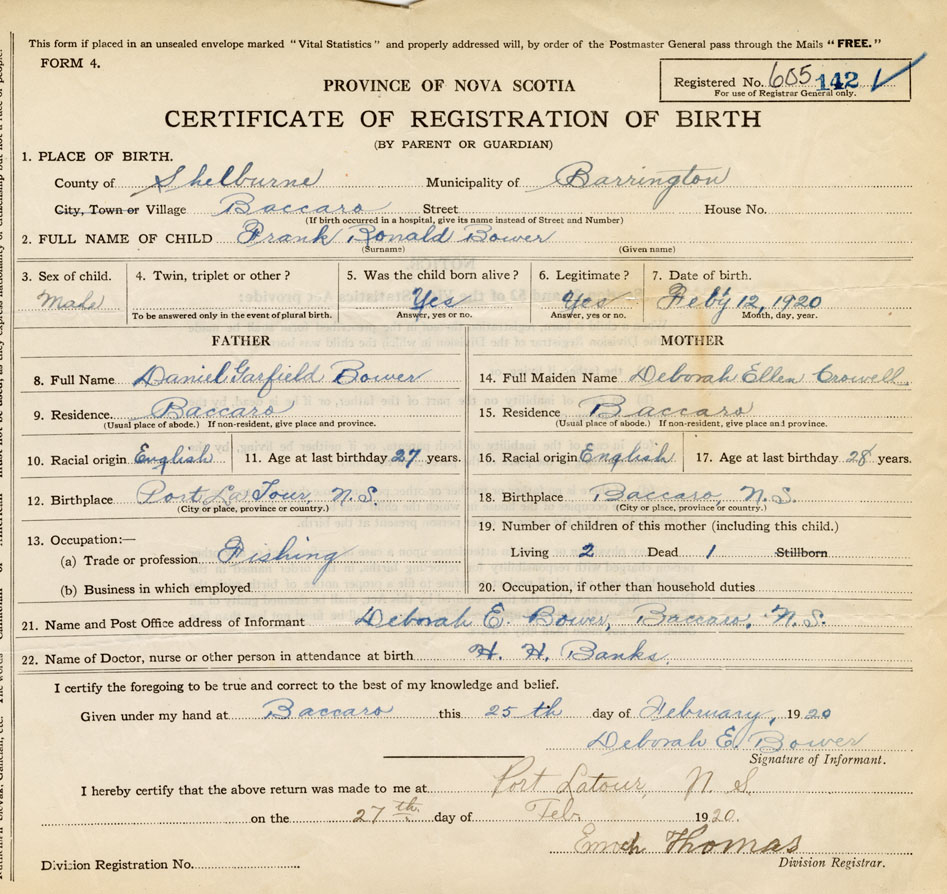 This form if placed in an unsealed envelope marked "Vital Statistics" and properly addressed will, by order of the Postmaster General pass through the Mails "FREE."
FORM 4.
Registered No. 605 142 ✓
For use of Registrar General only.
PROVINCE OF NOVA SCOTIA
CERTIFICATE OF REGISTRATION OF BIRTH
(BY PARENT OR GUARDIAN)
1. PLACE OF BIRTH.
County of Shelburne Municipality of Barrington
City, Town or Village Baccaro Street House No.
(If birth occurred in a hospital, give its name instead of Street and Number)
2. FULL NAME OF CHILD Frank Ronald Bower
(Surname) (Given name)
3. Sex of child. 4. Twin, triplet or other? 5. Was the child born alive? 6. Legitimate? 7. Date of birth.
Male Yes Yes Feb'y 12, 1920
To be answered only in the event of plural birth. Answer, yes or no. Answer, yes or no. Month, day, year.
FATHER MOTHER
8. Full Name Daniel Garfield Bower 14. Full Maiden Name Deborah Ellen Crowell
9. Residence. Baccaro 15. Residence Baccaro
(Usual place of abode.) If non-resident, give place and province. (Usual place of abode.) If non-resident, give place and province.
10. Racial origin English 11. Age at last birthday 27 years. 16. Racial origin English 17. Age at last birthday 28 years.
12. Birthplace Port La Tour, N.S. 18. Birthplace Baccaro, N.S.
(City or place, province or country.) (City or place, province or country.)
13. Occupation:— 19. Number of children of this mother (including this child.)
(a) Trade or profession Fishing Living 2 Dead 1 Stillborn
(b) Business in which employed 20. Occupation, if other than household duties
21. Name and Post Office address of Informant Deborah E. Bower, Baccaro, N.S.
22. Name of Doctor, nurse or other person in attendance at birth H. H. Banks.
I certify the foregoing to be true and correct to the best of my knowledge and belief.
Given under my hand at Baccaro this 25 th day of February, 1920
Deborah E. Bower
Signature of Informant.
I hereby certify that the above return was made to me at Port Latour, N. S.
on the 27th day of Feb. 1920.
Thomas
Division Registration No. Division Registrar.